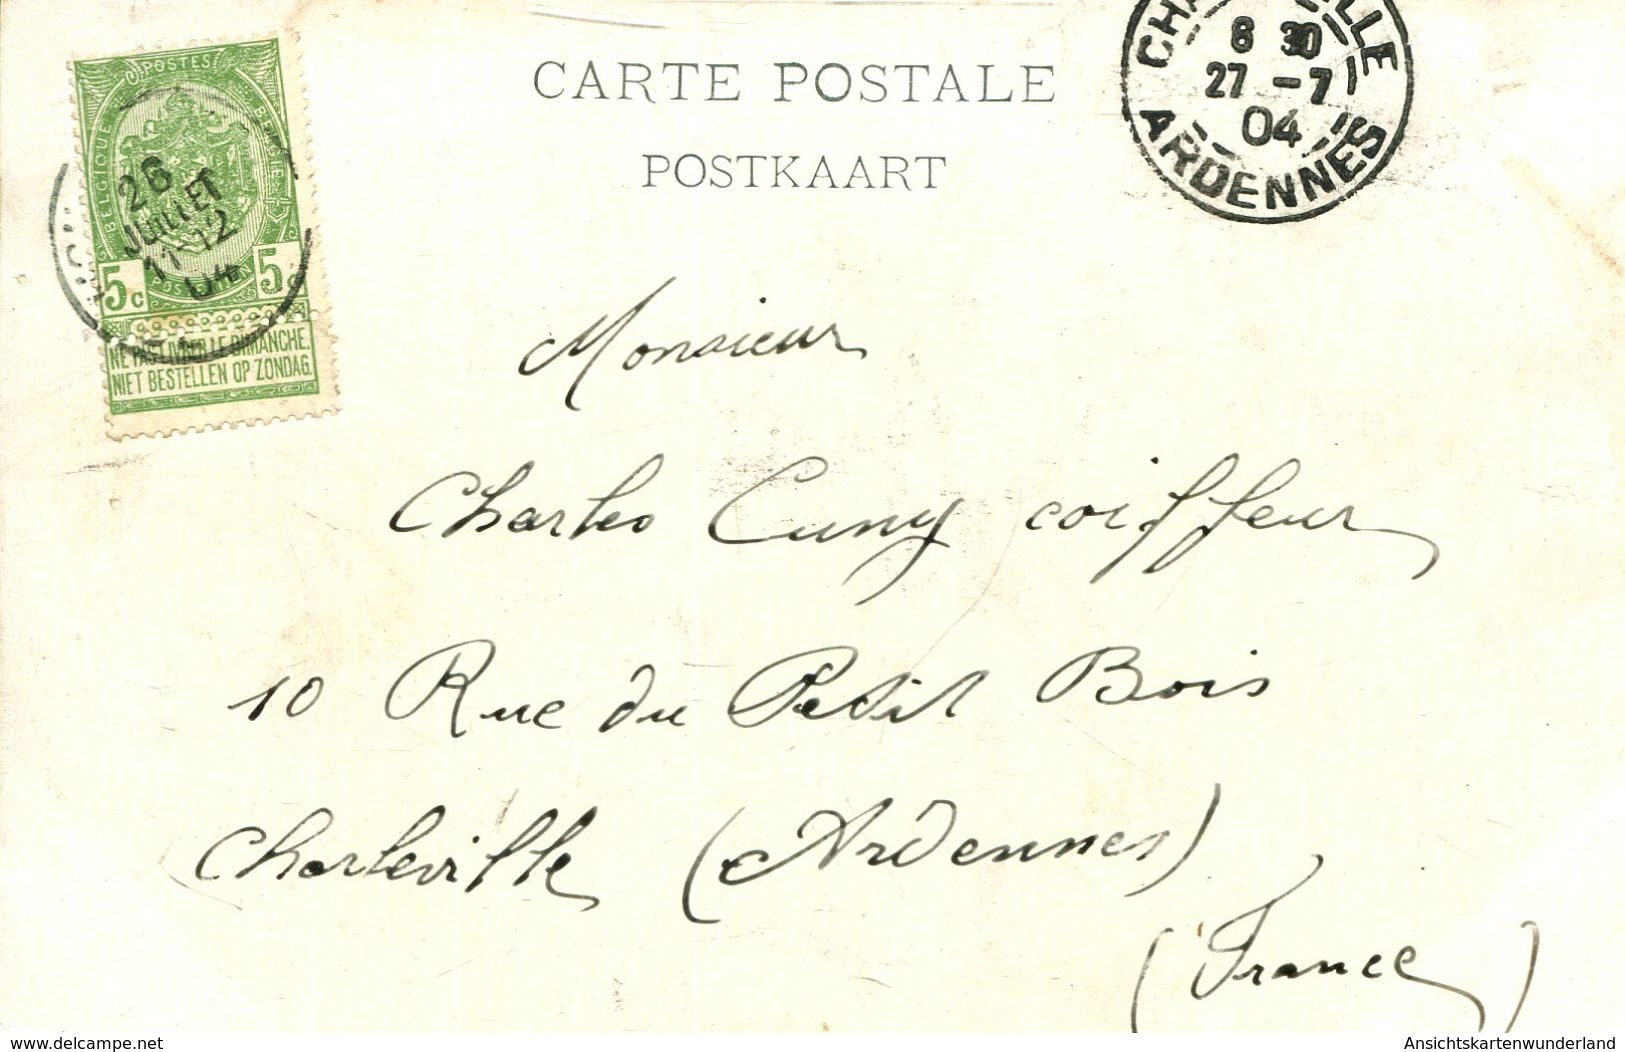 CARTE POSTALE
POSTKAART
POSTES
BELGIQUE
BELGIË
26
JUILLET
11-12
04
5c 5c
NE PAS LIVRER LE DIMANCHE.
NIET BESTELLEN OP ZONDAG.
8 30
27 - 7
04
ARDENNES
Monsieur
Charles Cuny coiffeur
10 Rue du Petit Bois
Charleville (Ardennes)
(France)
www.delcampe.net
Ansichtskartenwunderland